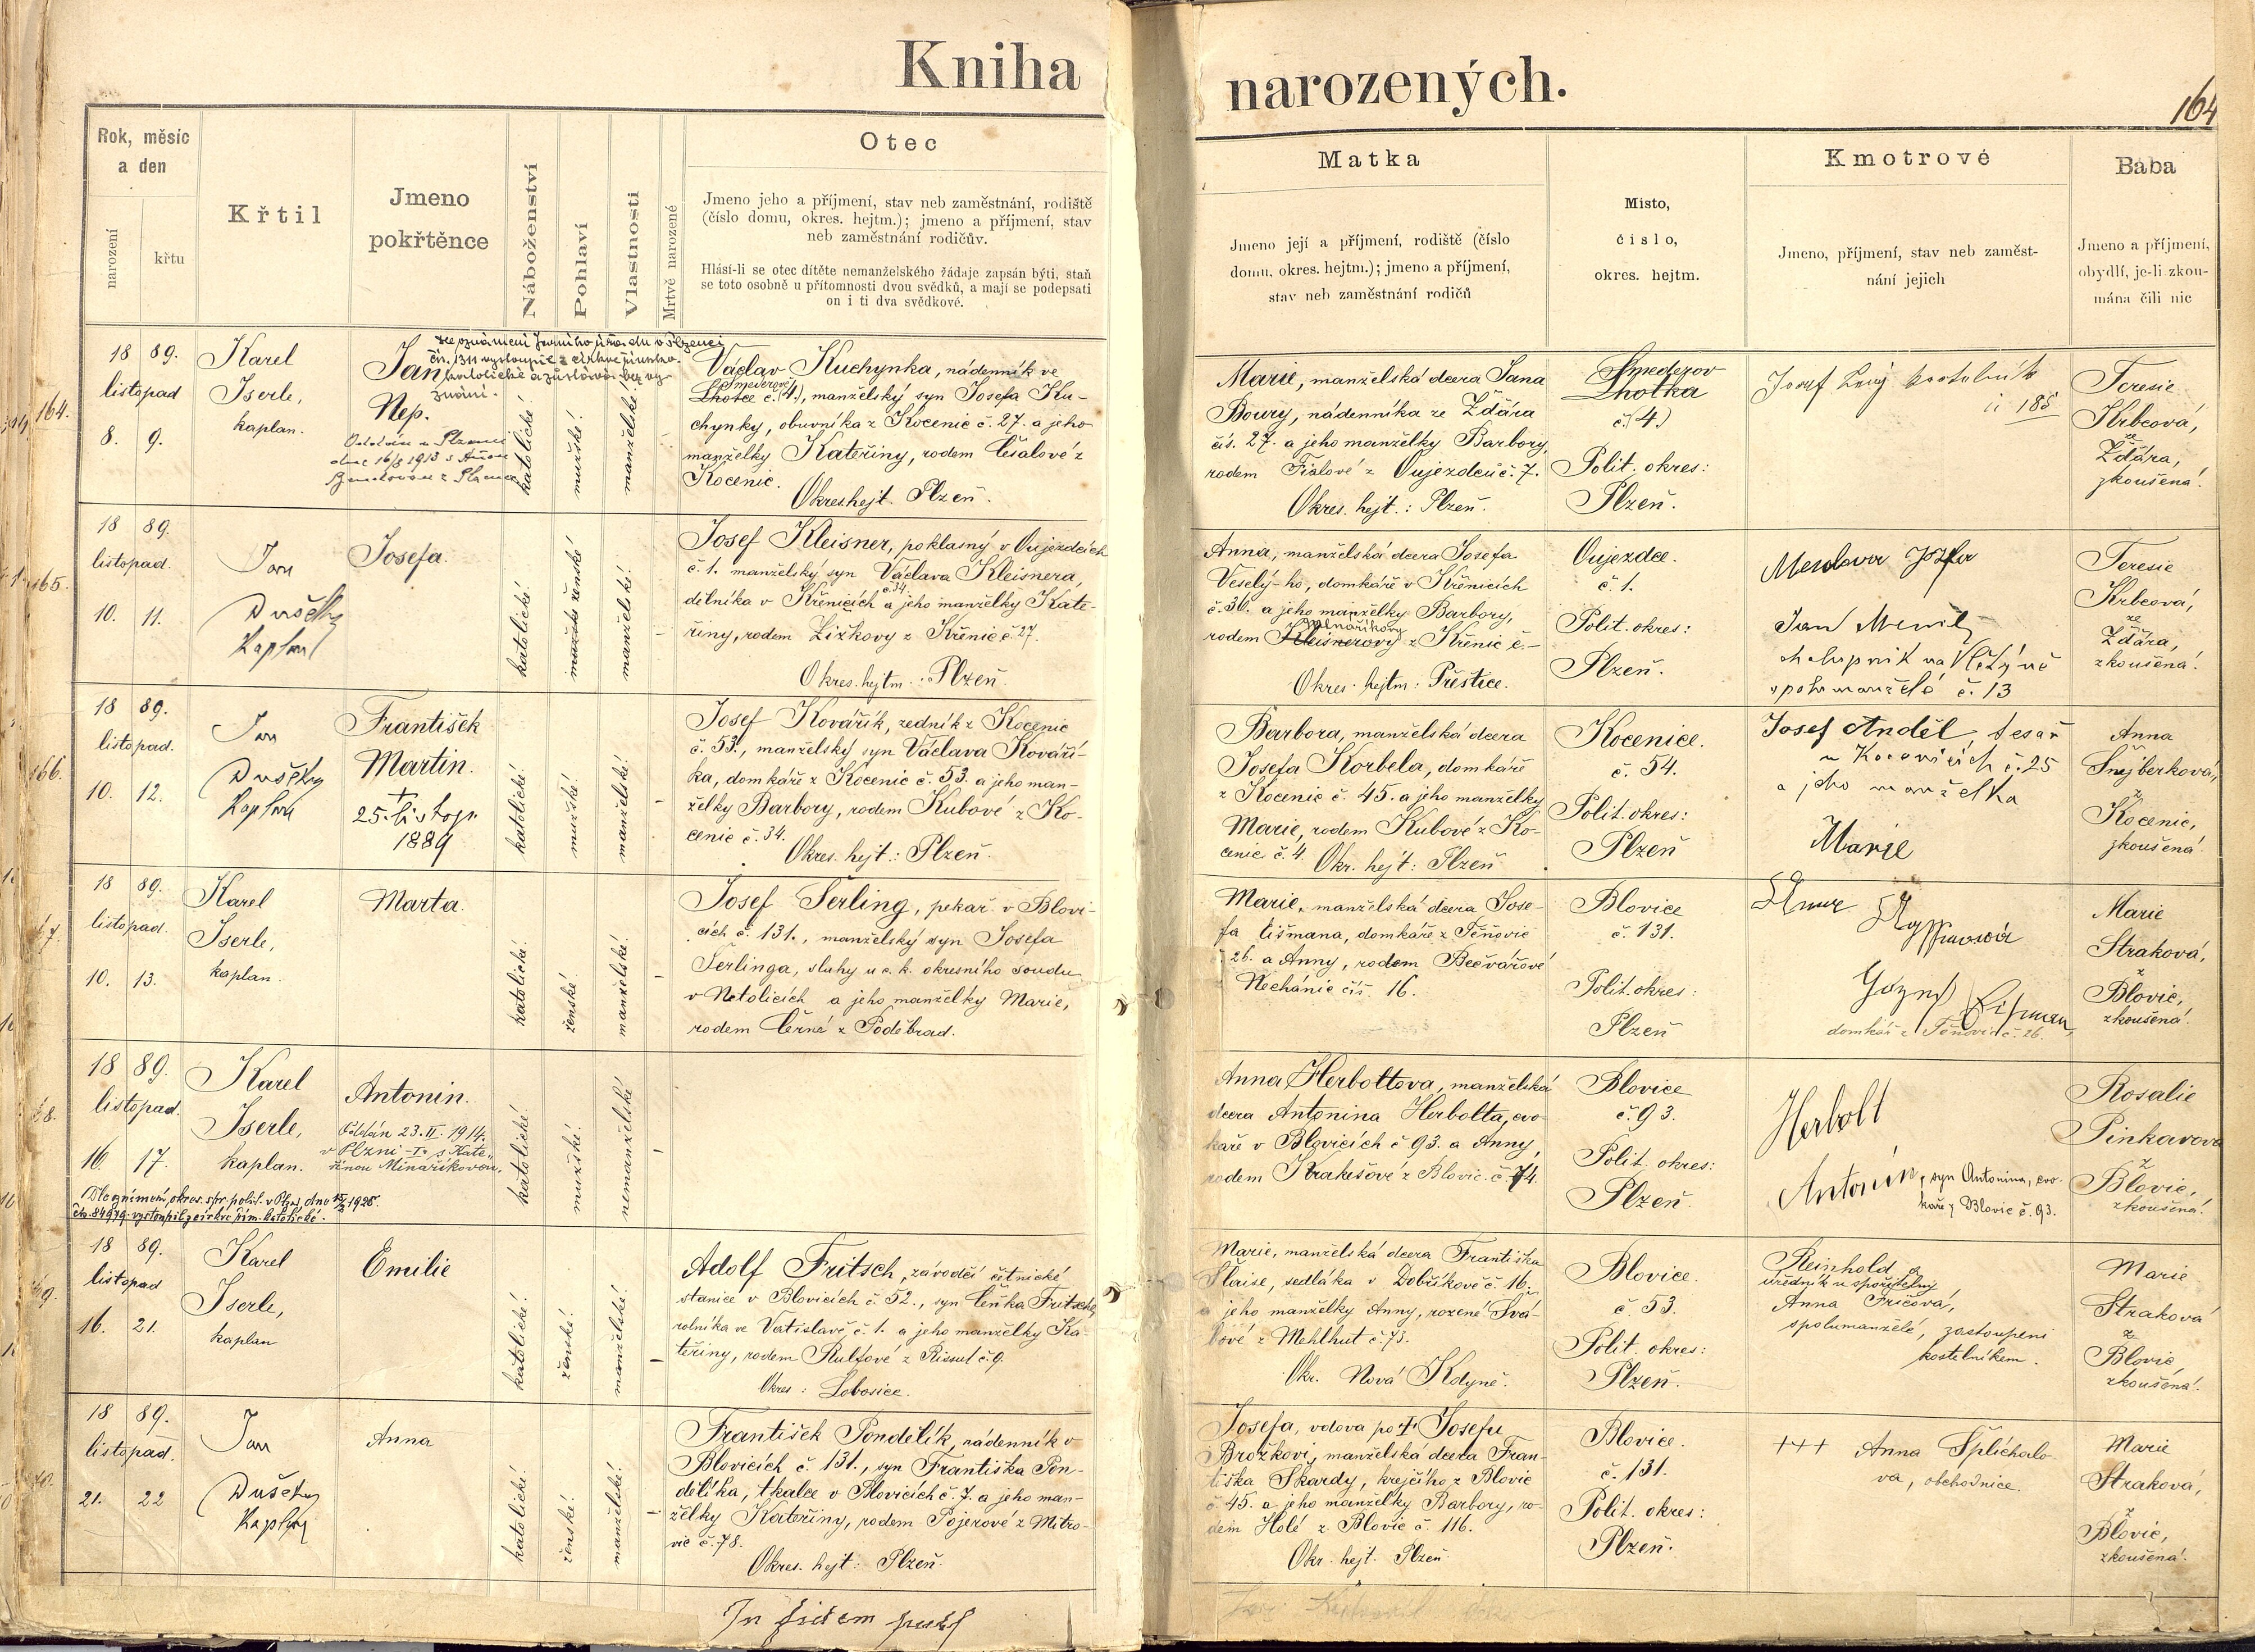 Kniha
narozených.
164
Rok, měsíc
a den
narození
křtu
Křtil
Jmeno
pokřtěnce
Náboženství
Pohlaví
Vlastnosti
Mrtvě narozené
Otec
Jmeno jeho a příjmení, stav neb zaměstnání, rodiště
(číslo domu, okres. hejtm.); jmeno a příjmení, stav
neb zaměstnání rodičův.
Hlásí-li se otec dítěte nemanželského žádaje zapsán býti, staň
se toto osobně u přítomnosti dvou svědků, a mají se podepsati
on i ti dva svědkové.
Matka
Jmeno její a příjmení, rodiště (číslo
domu, okres. hejtm.); jmeno a příjmení,
stav neb zaměstnání rodičů
Místo,
číslo,
okres. hejtm.
Kmotrové
Jmeno, příjmení, stav neb zaměst-
nání jejich
Bába
Jmeno a příjmení,
obydlí, je-li zkou-
mána čili nic
164.
18 89.
listopad
8. 9.
Karel
Iserle,
kaplan.
Jan
Nep.
katolické
mužské
manželské
Václav Kuchynka, nádenník ve
Smederově
Lhotce č. (4), manželský syn Josefa Ku-
chynky, obuvníka z Kocenic č. 27. a jeho
manželky Kateřiny, rodem Čásalové z
Kocenic.
Okres. hejt. Plzeň.
Marie, manželská dcera Jana
Boury, nádenníka ze Zďára
čís. 27. a jeho manželky Barbory,
rodem Fialové z Oujezdců č. 7.
Okres. hejt.: Plzeň.
Smederov
Lhotka
č. (4)
Polit. okres:
Plzeň.
Josef
č 185
Teresie
Krbcová,
ze
Zďára,
zkoušená.
165.
18 89.
listopad.
10. 11.
Jan
Dušek
kaplan
Josefa.
katolické
mužské ženské
manželské
Josef Kleisner, poklasný v Oujezdcích
č. 1. manželský syn Václava Kleisnera,
č. 34.
dělníka v Křenicích a jeho manželky Kate-
řiny, rodem Žižkovy z Křenic č. 27.
Okres. hejtm.: Plzeň.
Anna, manželská dcera Josefa
Veselý-ho, domkáře v Křenicích
č. 36. a jeho manželky Barbory,
rodem Kleisnerovy z Křenic č. –
Okres. hejtm: Přeštice.
Oujezdce.
č 1.
Polit. okres:
Plzeň.
Jan
spolu manželé č. 13
Teresie
Krbcová,
ze
Zďára,
zkoušená.
166.
18 89.
listopad.
10. 12.
Jan
Dušek
kaplan
František
Martin.
†
25. listop.
1889
katolické
mužské
manželské
Josef Kovářík, zedník z Kocenic
č. 53., manželský syn Václava Kováří-
ka, domkáře z Kocenic č. 53. a jeho man-
želky Barbory, rodem Kubové z Ko-
cenic č. 34.
Okres. hejt.: Plzeň.
Barbora, manželská dcera
Josefa Korbela, domkáře
z Kocenic č. 45. a jeho manželky
Marie, rodem Kubové z Ko-
cenic č. 4. Okr. hejt: Plzeň
Kocenice.
č. 54.
Polit. okres:
Plzeň
Josef Anděl tesař
v Kocenicích č. 25
a jeho manželka
Marie
Anna
Šnejberková,
z
Kocenic,
zkoušená.
18 89.
listopad.
10. 13.
Karel
Iserle,
kaplan.
Marta.
katolické
ženské
manželské
Josef Šerling, pekař v Blovi-
cích č. 131., manželský syn Josefa
Šerlinga, sluhy u c. k. okresního soudu
v Netolicích a jeho manželky Marie,
rodem Černé z Poděbrad.
Marie, manželská dcera Jose-
fa Lišmana, domkáře z Těňovic
26. a Anny, rodem Bečvářové
Nechánic čís. 16.
Blovice
č. 131.
Polit. okres:
Plzeň
domkář z Těňovic č. 26.
Marie
Straková,
z
Blovic,
zkoušená.
18 89.
listopad.
16. 17.
Karel
Iserle,
kaplan.
Antonin.
Oddán 23. II. 1914.
v Plzni -I. s Kate-
řinou Minaříkovou.
katolické
mužské.
nemanželské
Anna Herboltova, manželská
dcera Antonina Herbolta, cvo-
kaře v Blovicích č 93. a Anny,
rodem Strakešové z Blovic. č. 74.
Blovice
č. 93.
Polit. okres:
Plzeň.
Herbolt
Antonín, syn Antonina, cvo-
kaře z Blovic č. 93.
Rosalie
Pinkavova
z
Blovic,
zkoušená.
18 89.
listopad
16. 21.
Karel
Iserle,
kaplan
Emilie
katolické
ženské
manželské
Adolf Fritsch, závodčí četnické
stanice v Blovicích č. 52., syn Čeňka Fritsche,
rolníka ve Vatislavě č. 1. a jeho manželky Ka-
teřiny, rodem Rulfové z Rissut č. 9.
Okres: Lobosice.
Marie, manželská dcera Františka
Šlaise, sedláka v Dobříkově č. 16.
a jeho manželky Anny, rozené Svá-
lové z Mehlhut č. 73.
Okr. Nová Kdyně.
Blovice.
č 53.
Polit. okres:
Plzeň.
Reinhold a
úředník u spořitelny
Anna Fričová,
spolumanželé, zastoupeni
kostelníkem.
Marie
Straková
z
Blovic,
zkoušená.
18 89.
listopad.
21. 22
Jan
Dušek
kaplan
Anna
katolické
ženské
manželské
František Pondělík, nádenník v
Blovicích č. 131., syn Františka Pon-
dělíka, tkalce v Blovicích č. 7. a jeho man-
želky Kateřiny, rodem Pojerové z Mitro-
vic č. 78.
Okres. hejt: Plzeň.
Josefa, vdova po † Josefu
Brožkovi, manželská dcera Fran-
tiška Skardy, krejčího z Blovic
č 45. a jeho manželky Barbory, ro-
dem Holé z Blovic č. 116.
Okr. hejt. Plzeň
Blovice.
č. 131.
Polit. okres:
Plzeň.
+++ Anna Šplíchalo-
va, obchodnice.
Marie
Straková,
z
Blovic,
zkoušená.
In fidem